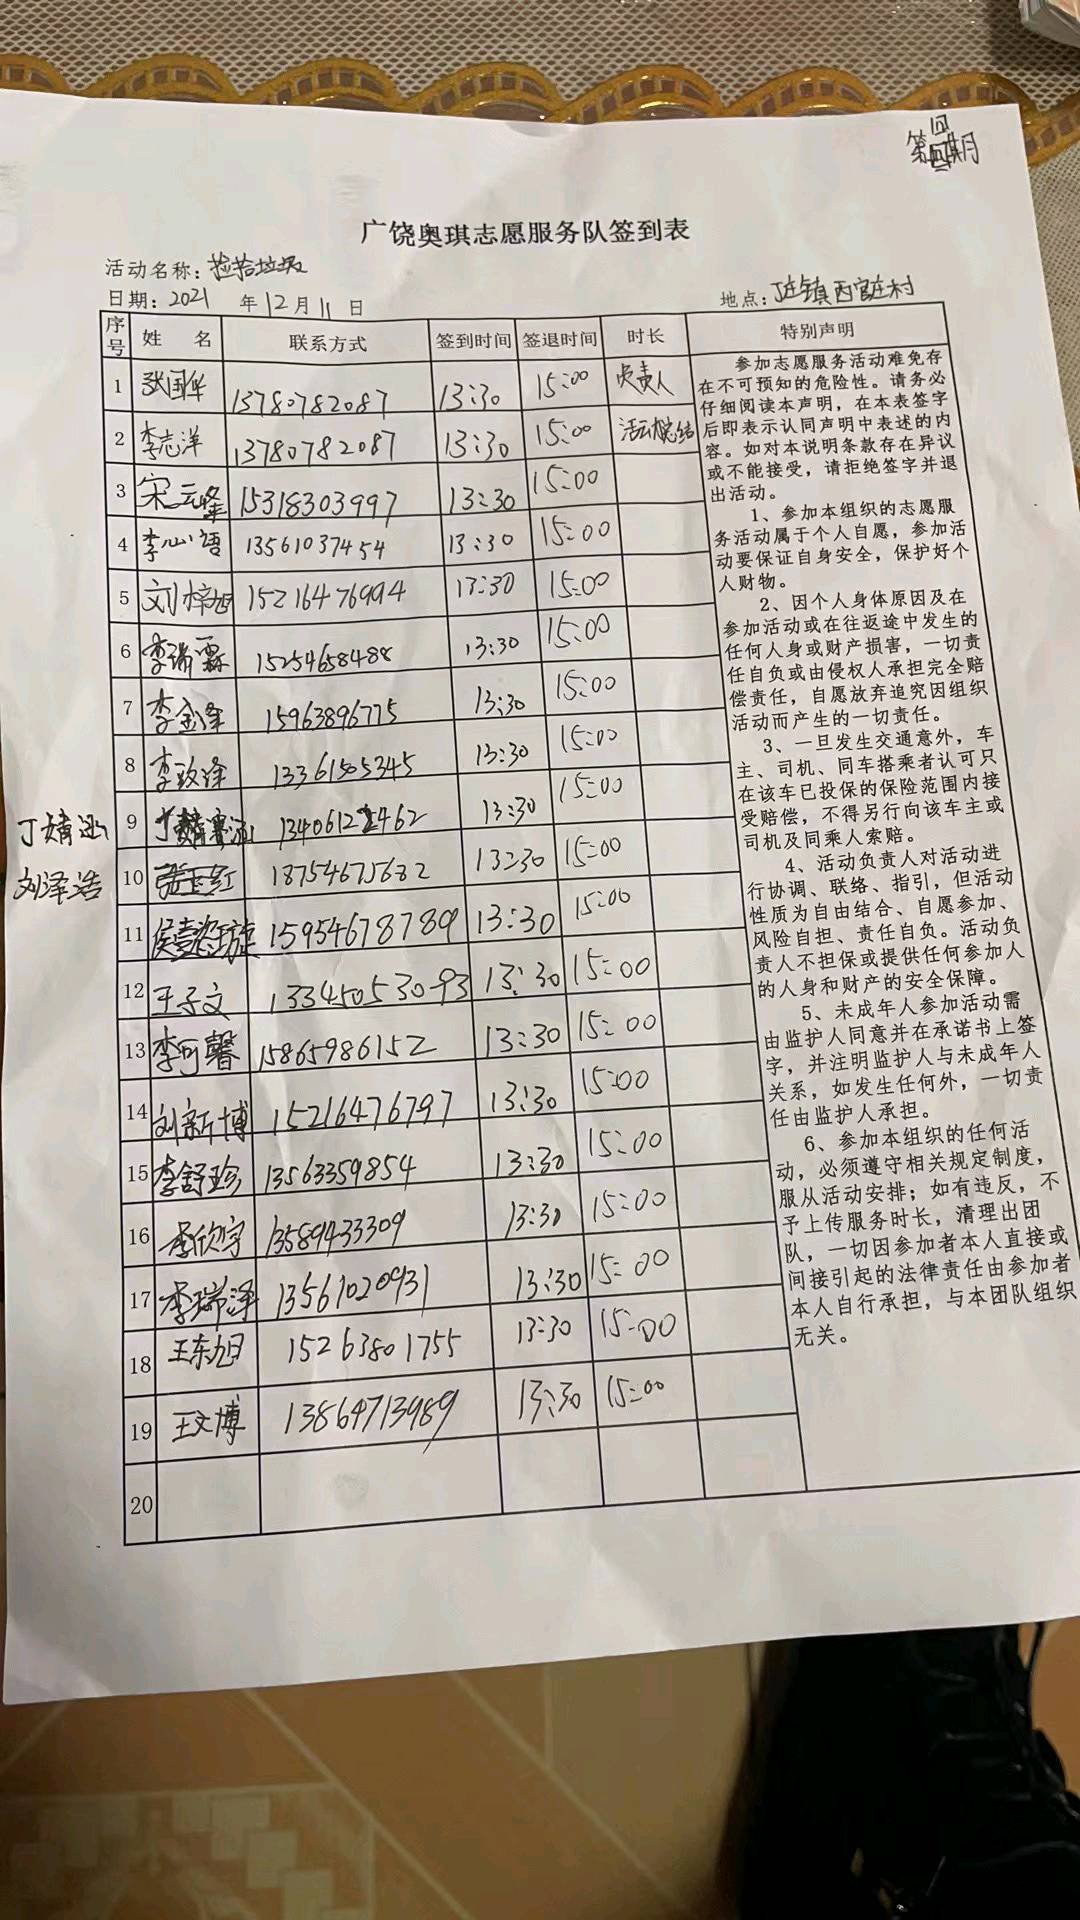 第四期
广饶奥琪志愿服务队签到表
活动名称：捡拾垃圾
日期：2021 年12月11日
地点：丁庄镇西宫庄村
序号 姓 名 联系方式 签到时间 签退时间 时长 特别声明
1 张国华 13780782087 13:30 15:00 负责人
2 李志洋 13780782087 13:30 15:00 活动总结
3 宋云峰 15318303997 13:30 15:00
4 李心语 13561037454 13:30 15:00
5 刘梓旭 15216476994 13:30 15:00
6 李瑞霖 15254658488 13:30 15:00
7 李金泽 15963896775 13:30 15:00
8 李政泽 13361505345 13:30 15:00
丁婧涵 9 13406122462 13:30 15:00
刘泽浩 10 18754675682 13:30 15:00
11 侯懿璇 15954678789 13:30 15:00
12 王子文 13345053093 13:30 15:00
13 李可馨 15865986152 13:30 15:00
14 刘新博 15216476797 13:30 15:00
15 李舒珍 13563359854 13:30 15:00
16 李欣宇 13589433309 13:30 15:00
17 李瑞泽 13561020931 13:30 15:00
18 王东旭 15263801755 13:30 15:00
19 王文博 13864713989 13:30 15:00
20
参加志愿服务活动难免存
在不可预知的危险性。请务必
仔细阅读本声明，在本表签字
后即表示认同声明中表述的内
容。如对本说明条款存在异议
或不能接受，请拒绝签字并退
出活动。
1、参加本组织的志愿服
务活动属于个人自愿，参加活
动要保证自身安全，保护好个
人财物。
2、因个人身体原因及在
参加活动或在往返途中发生的
任何人身或财产损害，一切责
任自负或由侵权人承担完全赔
偿责任，自愿放弃追究因组织
活动而产生的一切责任。
3、一旦发生交通意外，车
主、司机、同车搭乘者认可只
在该车已投保的保险范围内接
受赔偿，不得另行向该车主或
司机及同乘人索赔。
4、活动负责人对活动进
行协调、联络、指引，但活动
性质为自由结合、自愿参加、
风险自担、责任自负。活动负
责人不担保或提供任何参加人
的人身和财产的安全保障。
5、未成年人参加活动需
由监护人同意并在承诺书上签
字，并注明监护人与未成年人
关系，如发生任何外，一切责
任由监护人承担。
6、参加本组织的任何活
动，必须遵守相关规定制度，
服从活动安排；如有违反，不
予上传服务时长，清理出团
队，一切因参加者本人直接或
间接引起的法律责任由参加者
本人自行承担，与本团队组织
无关。